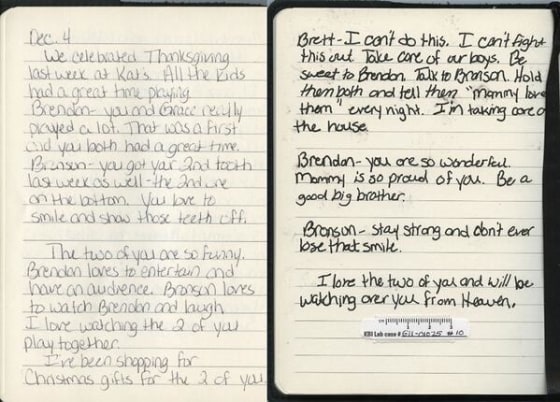 Dec. 4
We celebrated Thanksgiving
last week at Kat's. All the kids
had a great time playing.
Brendan - you and Grace really
played a lot. That was a first
and you both had a great time.
Bronson - you got your 2nd tooth
last week as well - the 2nd one
on the bottom. You love to
smile and show those teeth off.
The two of you are so funny.
Brendan loves to entertain and
have an audience. Bronson loves
to watch Brendan and laugh.
I love watching the 2 of you
play together.
I've been shopping for
Christmas gifts for the 2 of you.
Brett - I can't do this. I can't fight
this out. Take care of our boys. Be
sweet to Brendan. Talk to Bronson. Hold
them both and tell them "mommy love
them" every night. I'm taking care o
the house.
Brendan - you are so wonderful.
Mommy is so proud of you. Be a
good big brother.
Bronson - stay strong and don't ever
lose that smile.
I love the two of you and will be
watching over you from Heaven.
Lab case #
#10